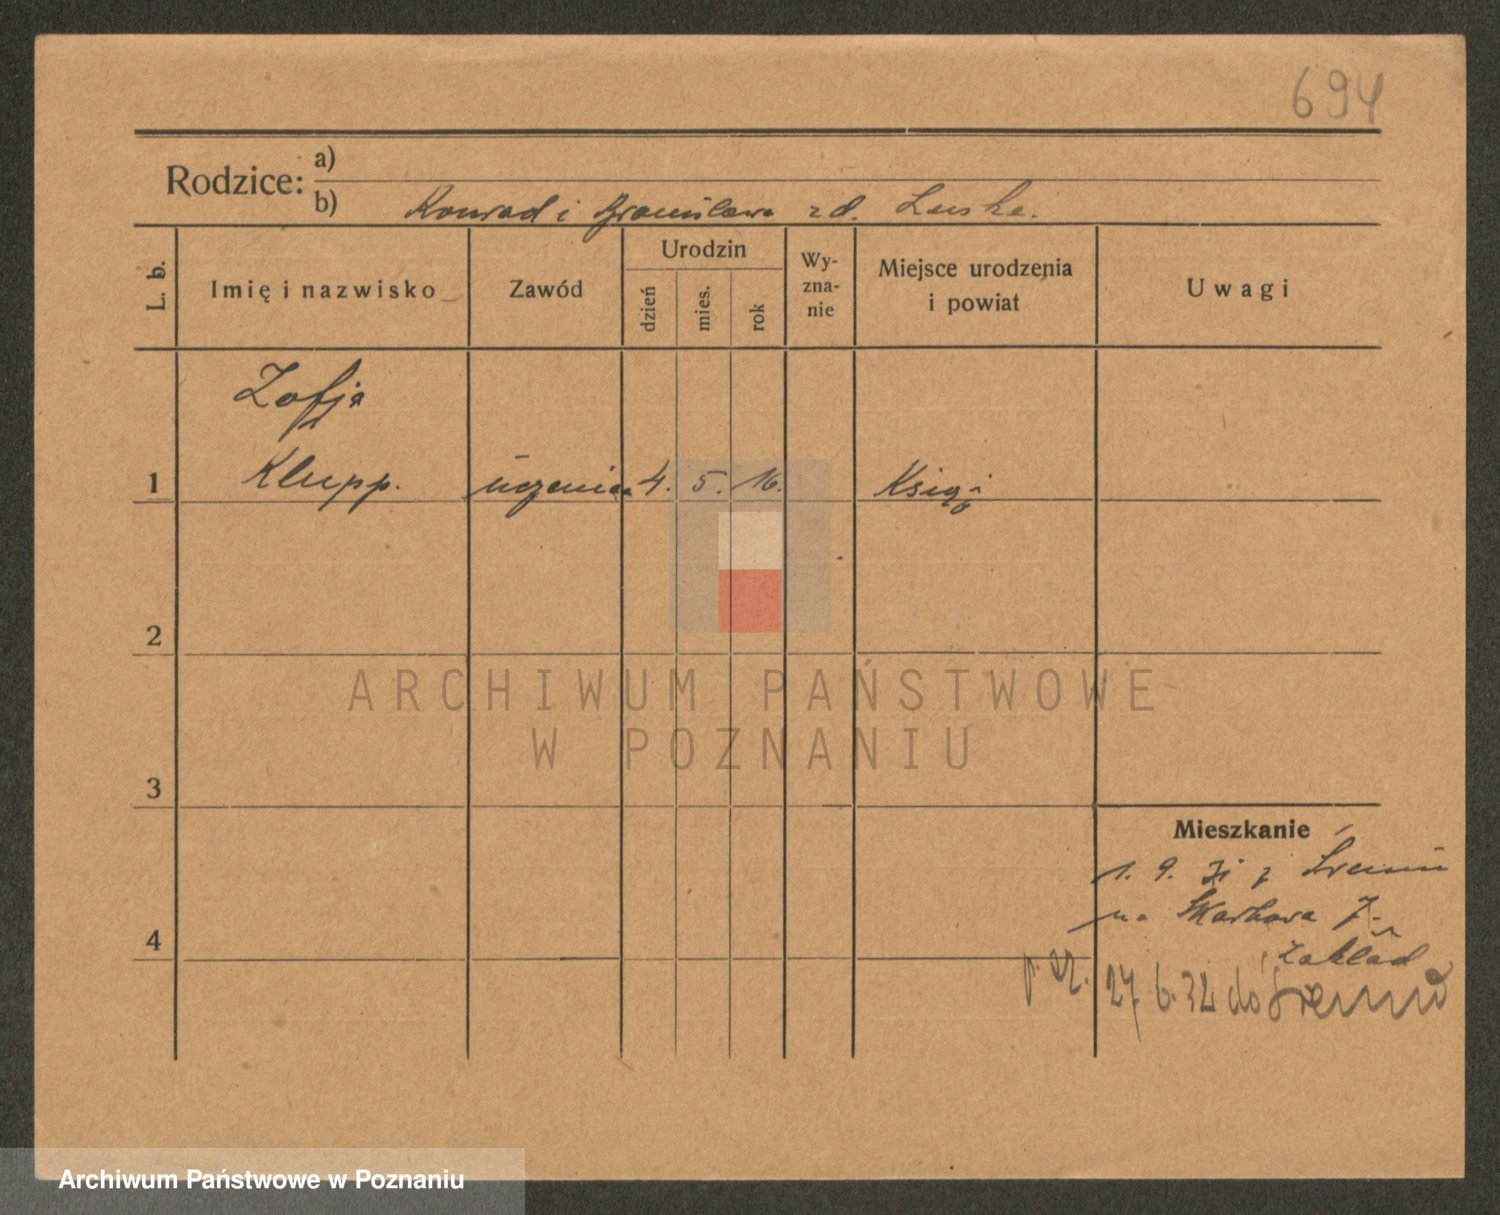 694
Rodzice:
a)
b) Konrad i Bronisława zd. Luska.
L. b.
Imię i nazwisko
Zawód
Urodzin
dzień
mies.
rok
Wy-
zna-
nie
Miejsce urodzenia
i powiat
Uwagi
Zofja
1 Klupp. uczenica 4. 5. 16. Książ
2
3
4
Mieszkanie
1. 9. 31 z Śremu
na Skarbowa 7.
Zakład
27. 6. 32 do Śremu
ARCHIWUM PAŃSTWOWE
W POZNANIU
Archiwum Państwowe w Poznaniu